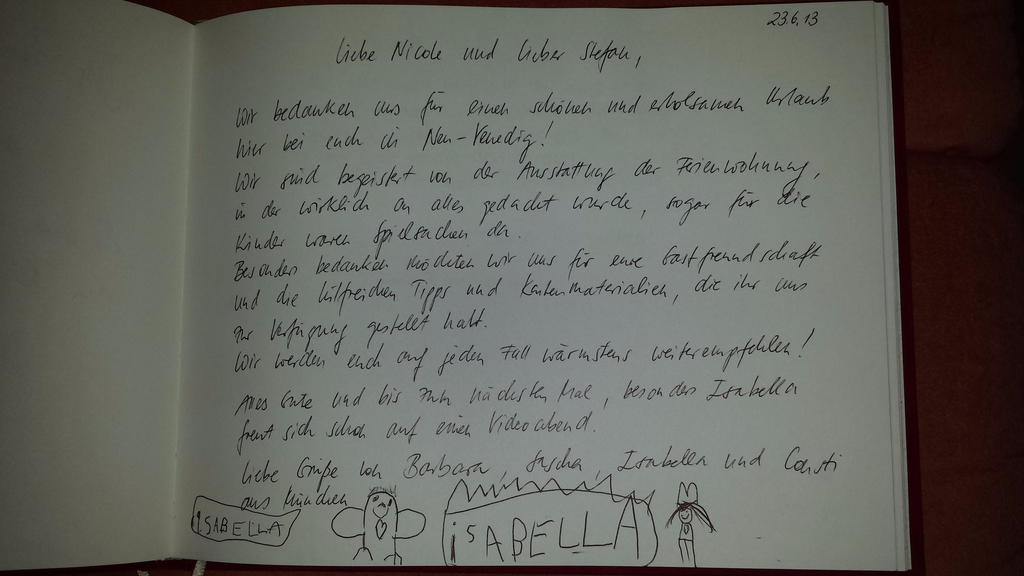 23.6.13
Liebe Nicole und lieber Stefan,
Wir bedanken uns für einen schönen und erholsamen Urlaub
hier bei euch in Neu-Venedig!
Wir sind begeistert von der Ausstattung der Ferienwohnung,
in der wirklich an alles gedacht wurde, sogar für die
Kinder waren Spielsachen da.
Besonders bedanken möchten wir uns für eure Gastfreundschaft
und die hilfreichen Tipps und Kartenmaterialien, die ihr uns
zur Verfügung gestellt habt.
Wir werden euch auf jeden Fall wärmstens weiterempfehlen!
Alles Gute und bis zum nächsten Mal, besonders Isabella
freut sich schon auf einen Videoabend.
Liebe Grüße von Barbara, Sascha, Isabella und Consti
aus München
iSABELLA
iSABELLA